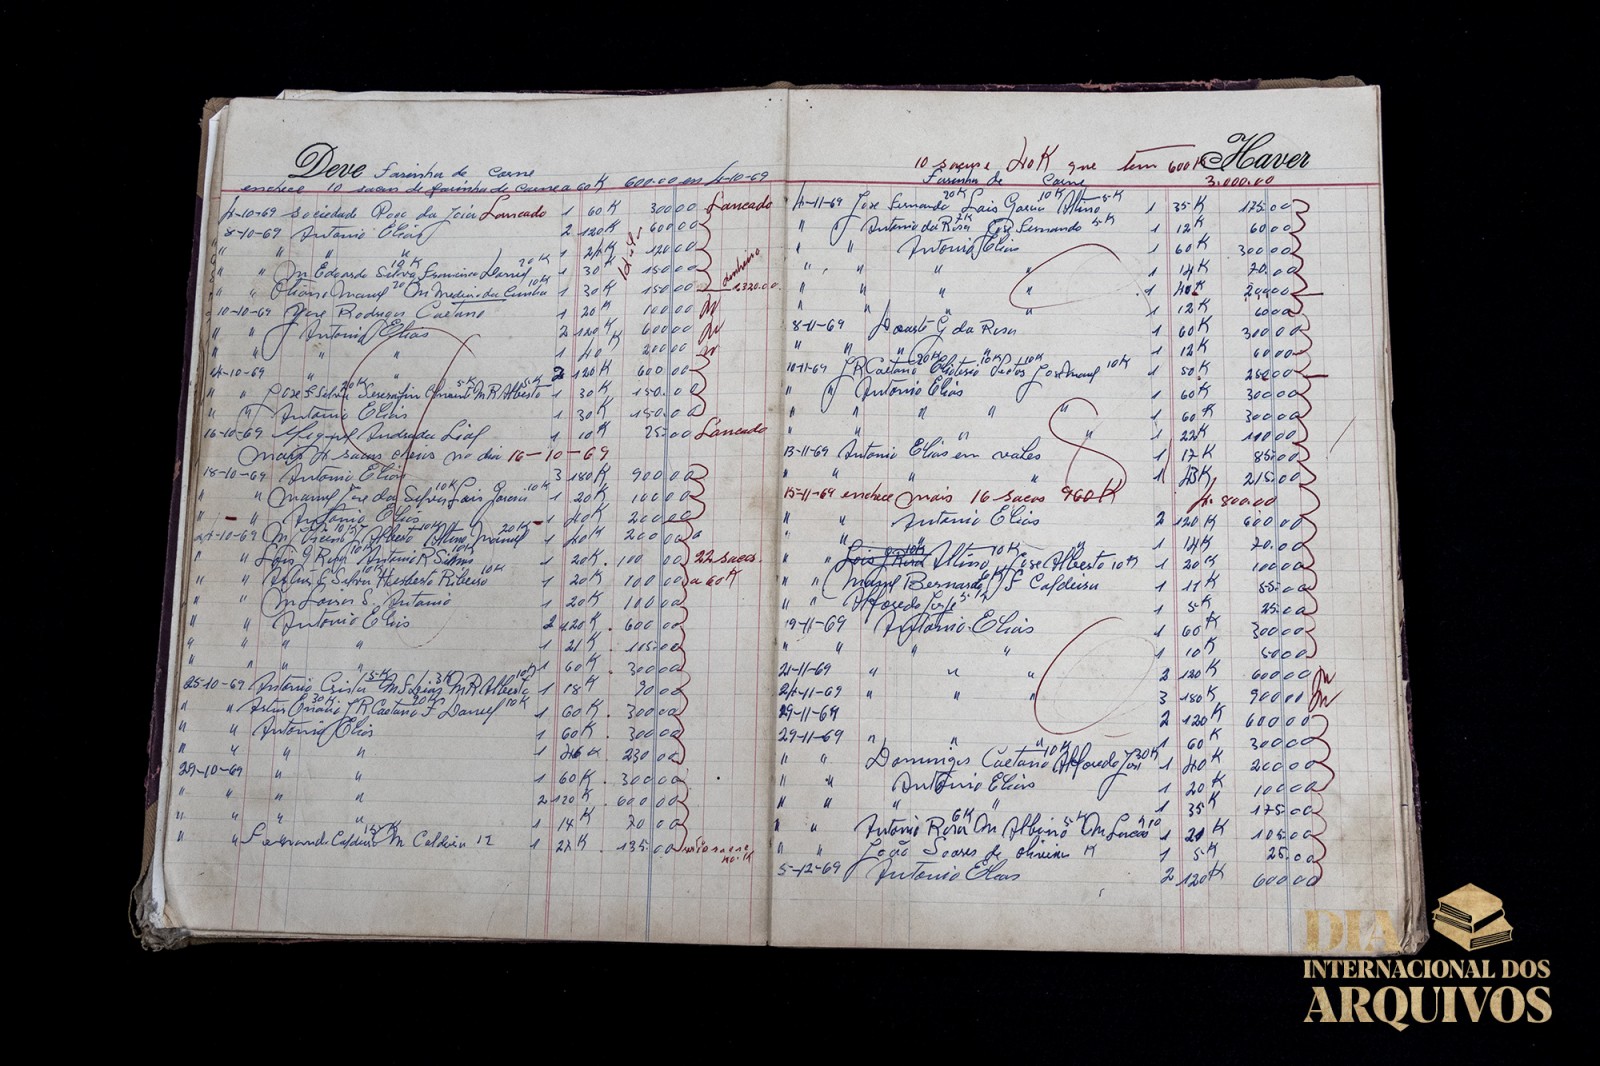 Deve Farinha de Carne
enchece 10 sacas de farinha de carne a 60K 600.00 em 4-10-69
4-10-69 Sociedade Poço da Joia Lancado 1 60K 300 00 Lancado
8-10-69 Antonio Elias 2 120K 600 00
" " " " 1 24K 120 00
" " M Edoardo Silva 10K Francisco Daniel 20K 1 30K 150 00 dinheiro
" " Manuel 20K M Medina da Cunha 10K 1 30K 150 00 1320.00
10-10-69 Jose Rodrigues Caetano 1 20K 100 00
" " Antonio Elias 2 120K 600 00
" " " " 1 40K 200 00
14-10-69 " " 2 120K 600 00
" Jose S. Silva 20K 5K M R Alberto 5K 1 30K 150.00
" " Antonio Elias 1 30K 150.00
16-10-69 Miguel Andrade Lial 1 10K 25.00 Lancado
mais sacas no dia 16-10-69
18-10-69 Antonio Elias 3 180K 900 00
" " Manuel Jose da Silva 10K Luis Garcia 10K 1 20K 100 00
" " Antonio Elias 1 40K 200 00
24-10-69 M Alberto 10K Manuel 20K 1 40K 200 00
" " Luis G Rosa 10K Antonio R Silva 10K 1 20K. 100 00 22 sacas.
" " Silva 10K Ribeiro 10K 1 20K 100 00 a 60K
" " M S. Antonio 1 20K 100 00
" " Antonio Elias 2 120K. 600 00
" " " " 1 21K. 105 00
" " " " 1 60K. 300 00
25-10-69 Antonio 5K M 3K M R Alberto 10K 1 18K 90 00
" " 30K J R Caetano 20K F Daniel 10K 1 60K. 300 00
" " Antonio Elias 1 60K. 300 00
" " " " 1 46K. 230 00
29-10-69 " " 1 60K. 300 00
" " " " 2 120K. 600 00
" " " " 1 14K. 70 00
" " Caldeira 15K M Caldeira 12 1 27K. 135.00
10 sacas e 40K que tem 600K Haver
Farinha de Carne 3.000.00
4-11-69 Jose Fernando 20K Luis Garcia 10K Altino 5K 1 35K 175.00
" " Antonio da Rosa 7K Jose Fernando 5K 1 12K 60 00
" " Antonio Elias 1 60K 300 00
" " " " 1 14K 70.00
" " " " 1 40K 200 00
" " " " 1 12K 60 00
8-11-69 Duarte G da Rosa 1 60K 300 00
" " " " 1 12K 60 00
10-11-69 J R Caetano 20K 10K 10K Jose Manuel 10K 1 50K 250 00
" " Antonio Elias 1 60K 300 00
" " " " 1 60K 300 00
" " " " 1 22K 110 00
13-11-69 Antonio Elias em vales 1 17K 85 00
" " 1 43K 215 00
15-11-69 enchece mais 16 sacos 960K 4.800.00
" " Antonio Elias 2 120K 600 00
" " 1 14K 70.00
" " Luis G Rosa 10K Altino 10K Jose Alberto 10K 1 20K 100 00
" " Manuel Bernardo 6K F Caldeira 1 11K 55.00
" " Alfredo Jose 5K 1 5K 25.00
19-11-69 Antonio Elias 1 60K 300 00
" " " " 1 10K 50 00
21-11-69 " " " 2 120 600 00
24-11-69 " " 3 180K 900 00
29-11-69 2 120K 600 00
29-11-69 " " " 1 60K 300 00
" " Domingos Caetano 10K Alfredo Jose 30K 1 40K 200 00
" " Antonio Elias 1 20K 100 00
" " " " 1 35K 175.00
" " Antonio Rosa 6K M Albino 5K M Lucas 10 1 21K 105 00
" " João Soares de Oliveira K 1 5K 25.00
5-12-69 Antonio Elias 2 120K 600 00
DIA
INTERNACIONAL DOS
ARQUIVOS